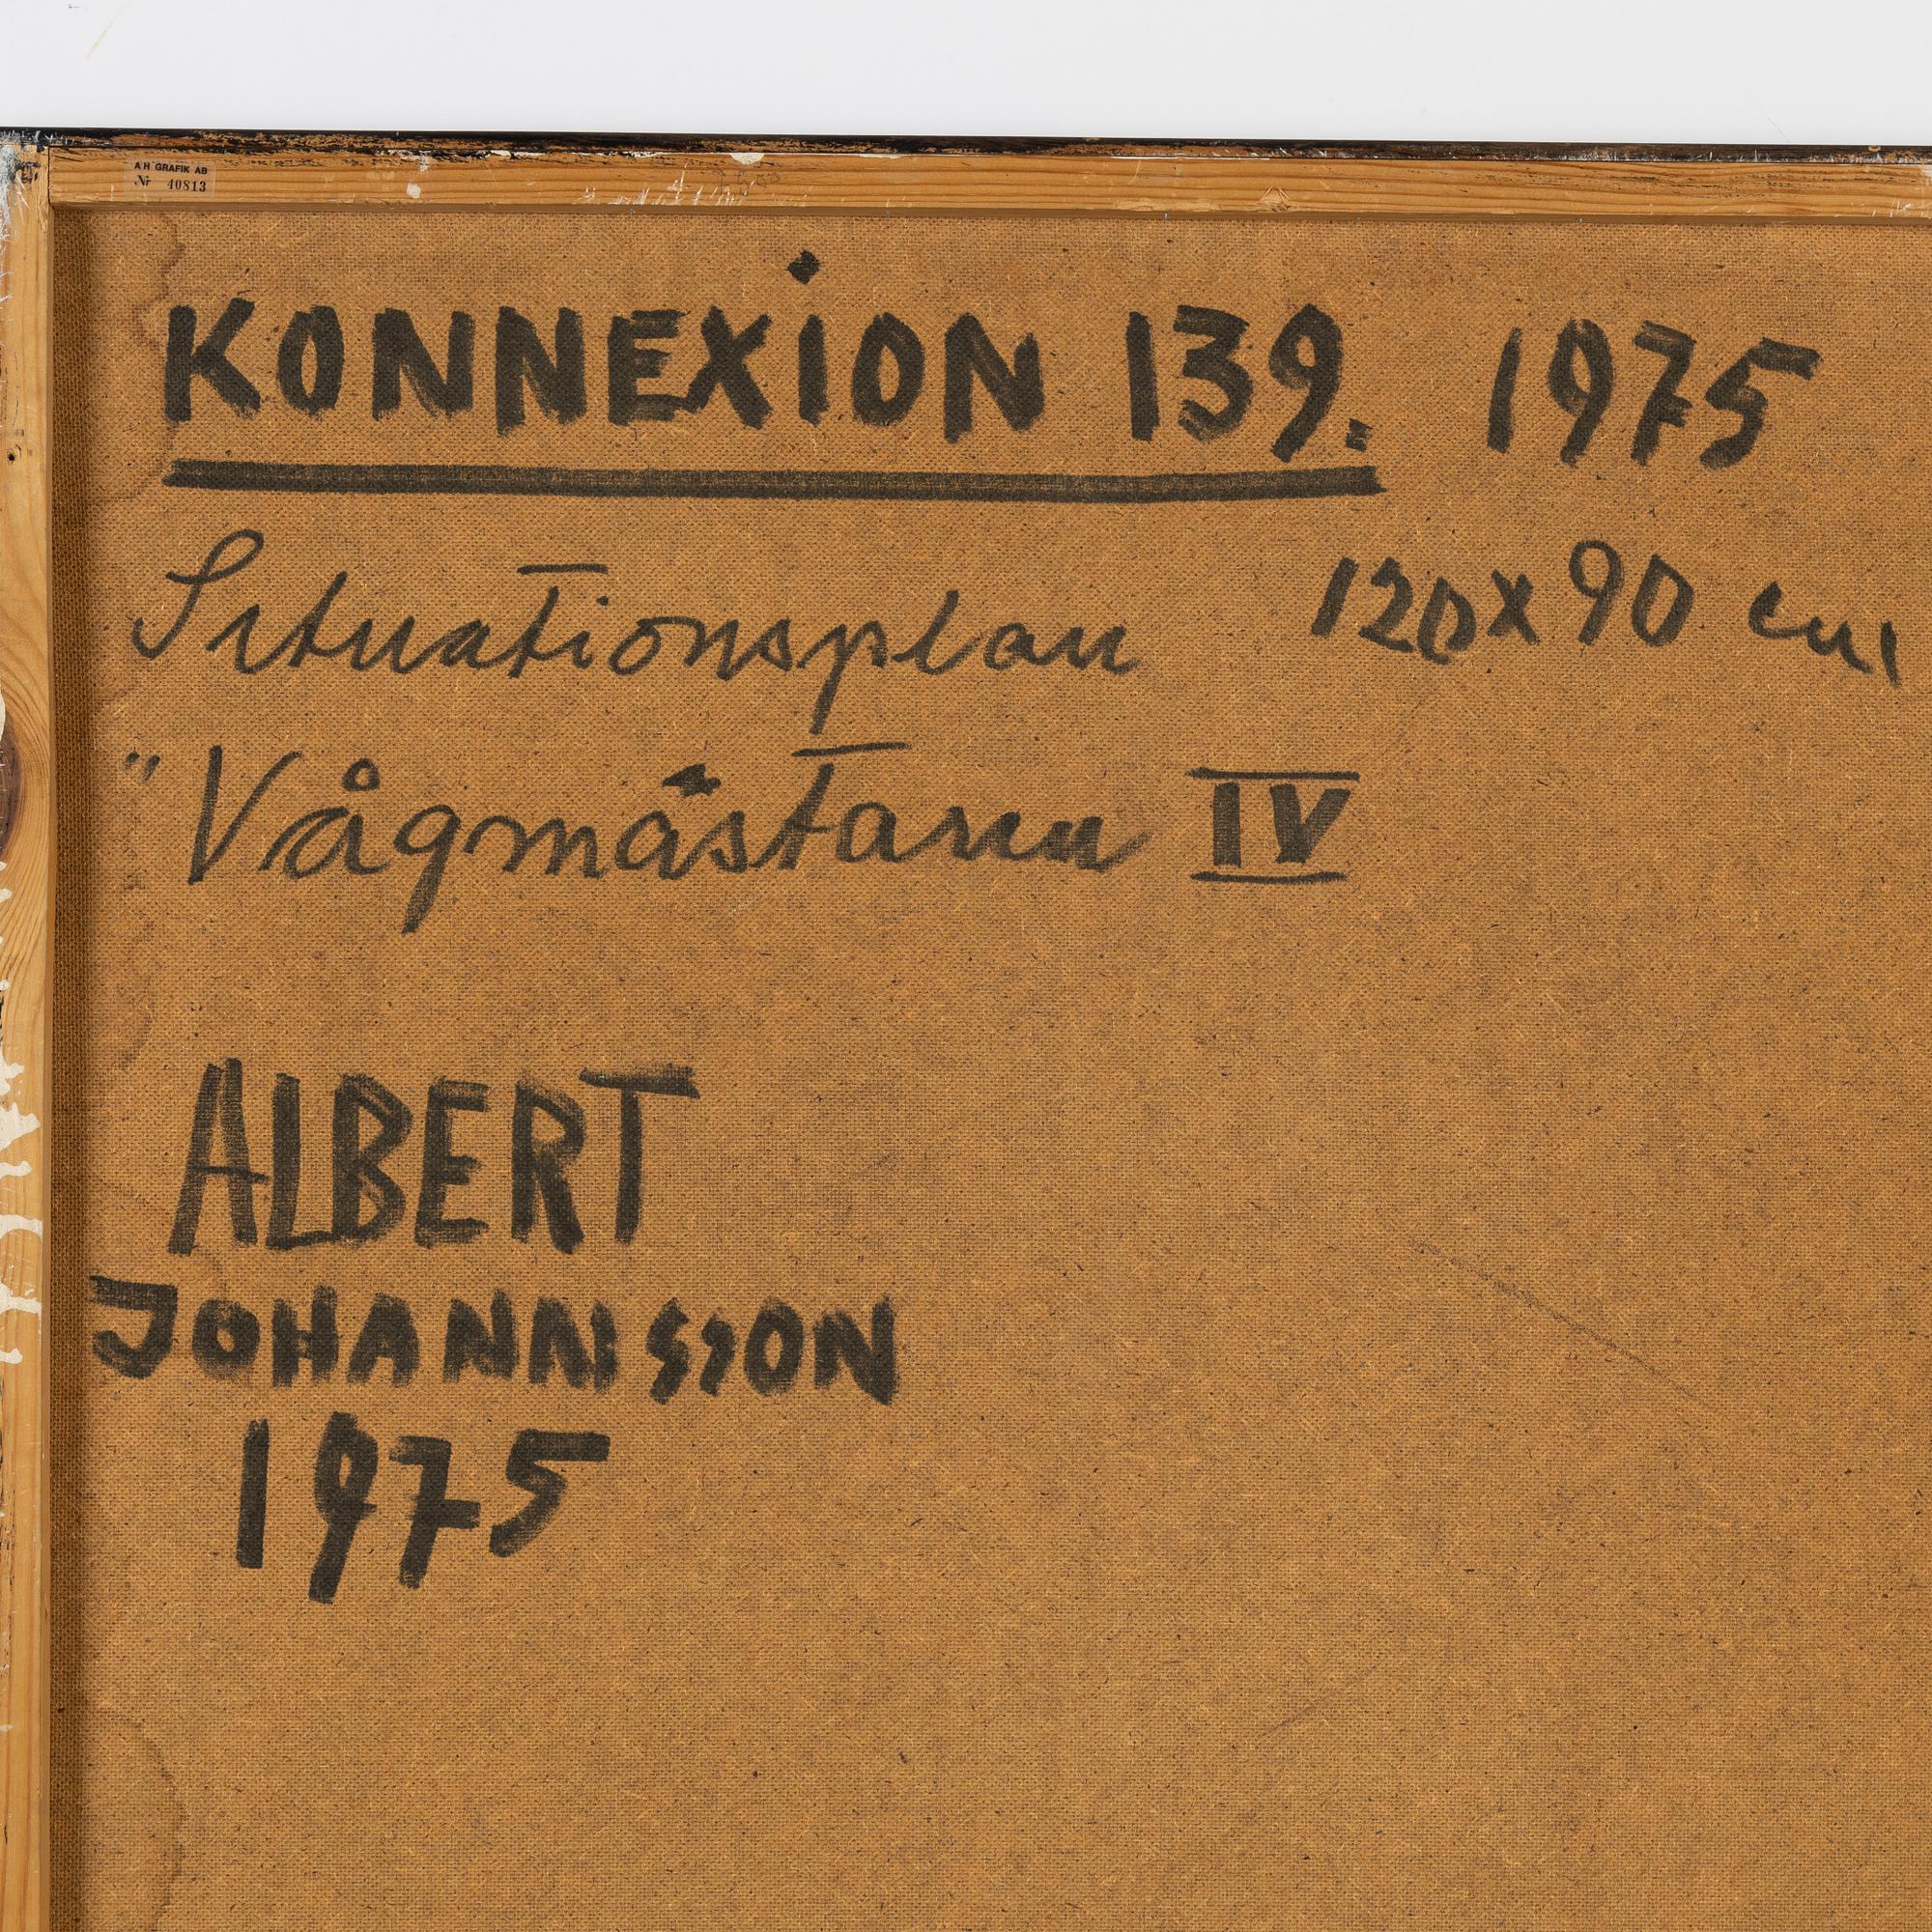 A H GRAFIK AB
Nr 40813
KONNEXiON 139. 1975
Situationsplan 120x90 cm
"Vågmästaren IV
ALBERT
JOHANNSSON
1975